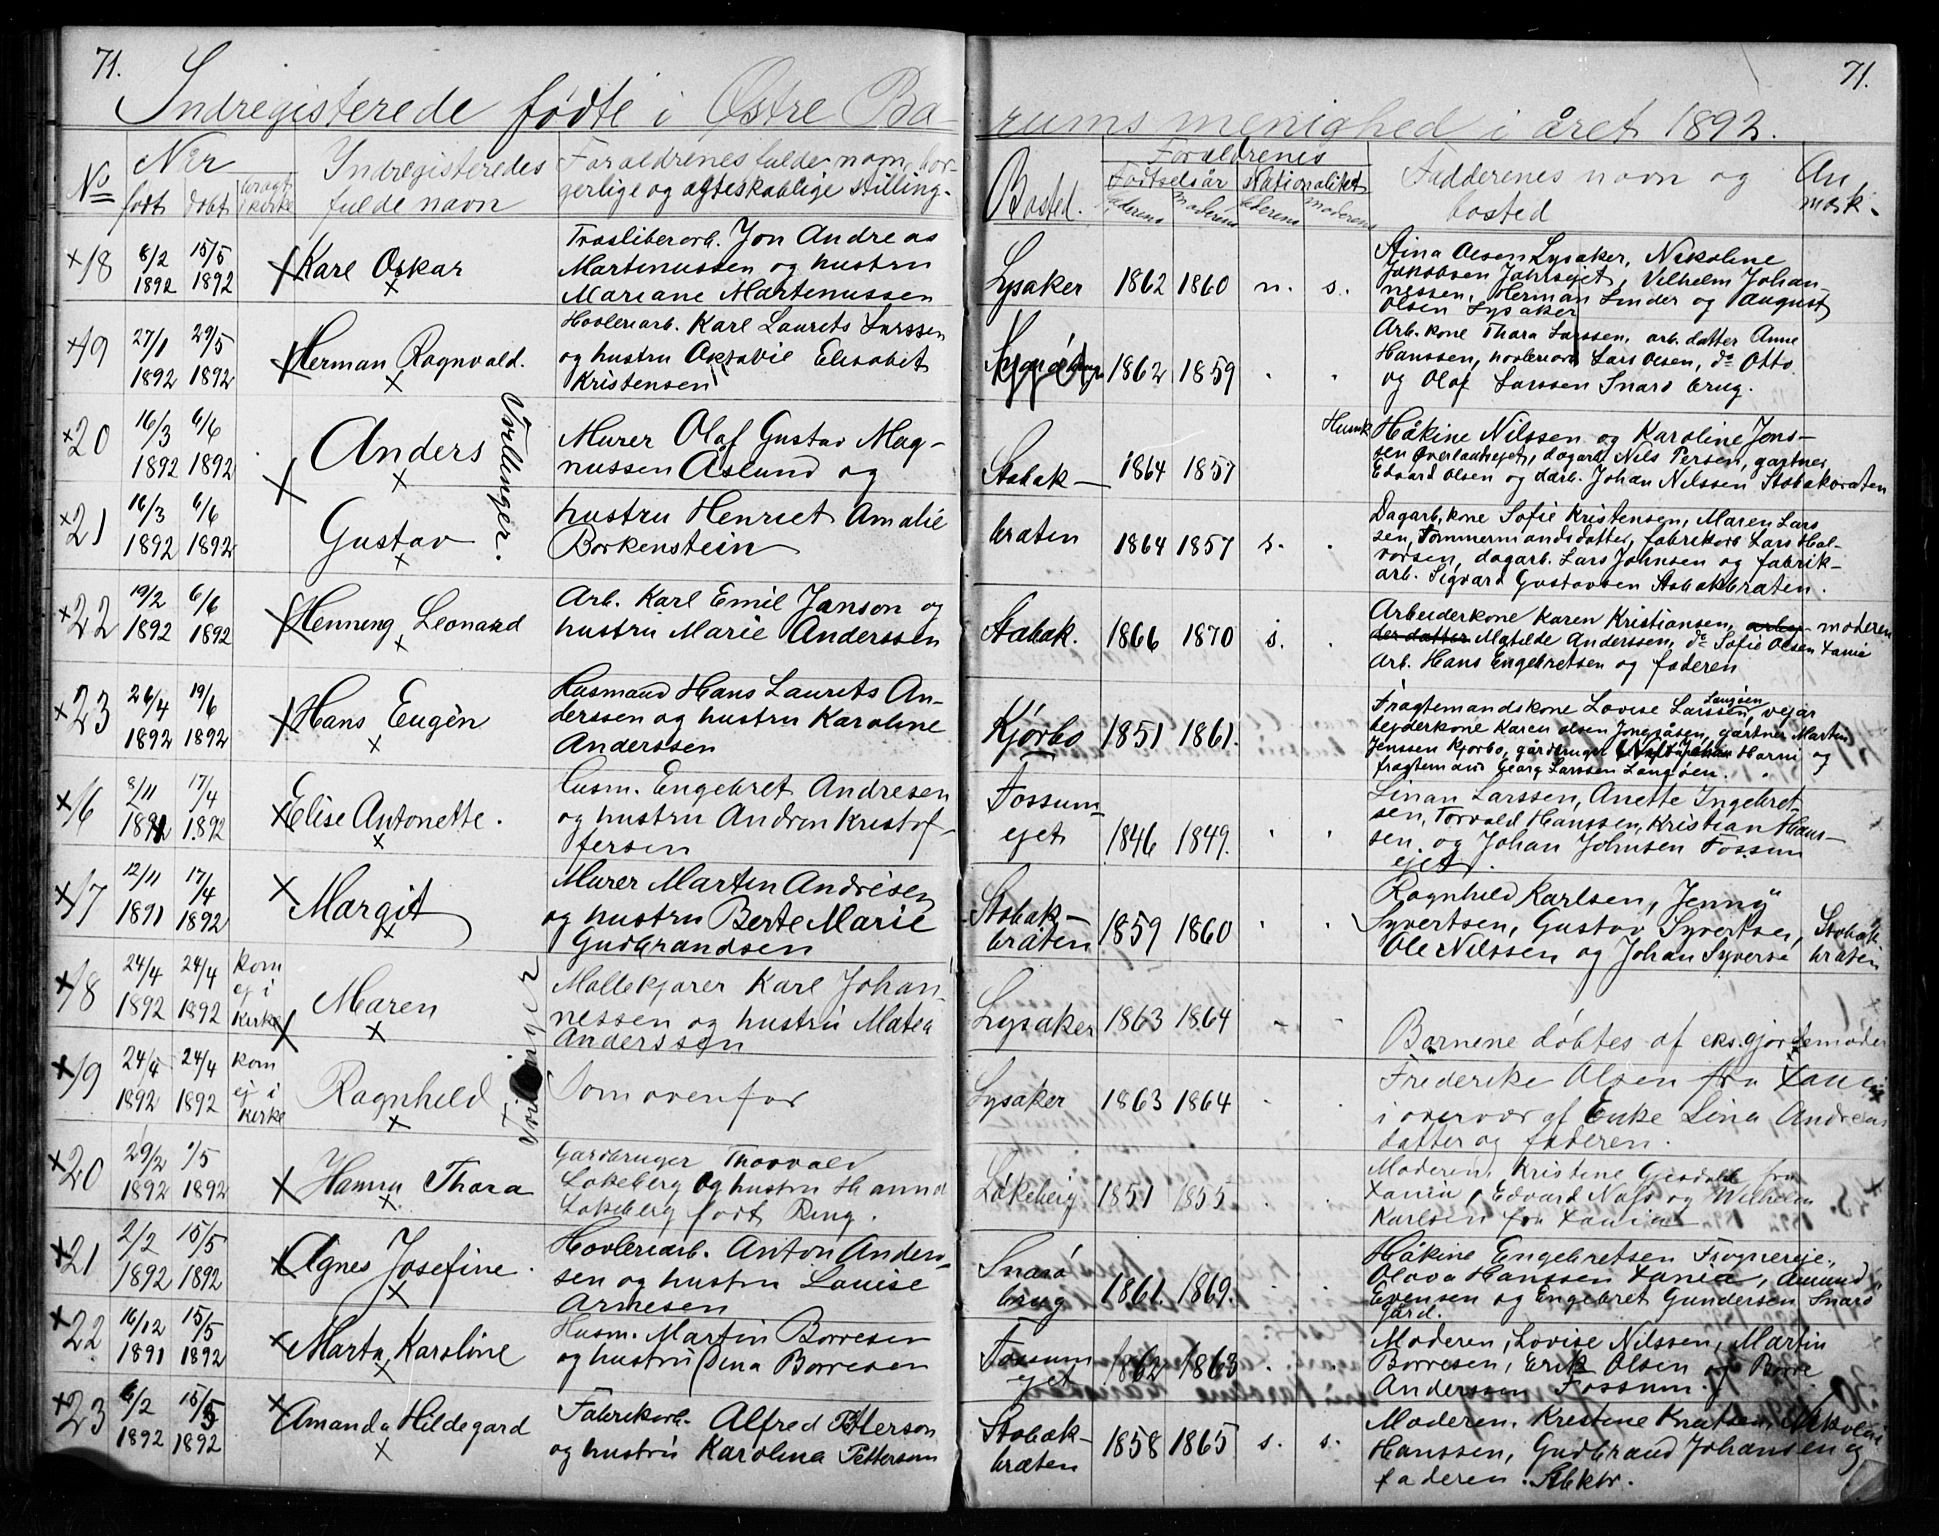 71.
71.
Indregisterede fødte i Østre Bærums menighed i året 1892.
No
Når
født
døbt
bragt i kirke
Indregisteredes
fulde navn
Forældrenes fulde navn, bor-
gerlige og ægteskablige stilling.
Bosted.
Forældrenes
Fødselsår
Nationalitet
Faderens
Moderens
Faderens
Moderens
Fadderenes navn og
bosted
An
mærk.
18
8/2 1892
15/5 1892
Karl Oskar
Træsliberarb. Jon Andreas
Martinussen og hustru
Mariane Martinussen
Lysaker
1862
1860
n.
s.
Stina Olsen Lysaker, Nikoline
Jakobsen Jahrsejet, Vilhelm Johan-
nessen, Herman Linder og August
Olsen Lysaker
19
27/1 1892
29/5 1892
Herman Ragnvald.
Høvleriarb. Karl Laurits Larssen
og hustru Oktavie Elisabet
Kristensen
1862
1859
Arb. kone Thara Larssen, arb. datter Anne
Hanssen, høvleriarb Lars Olsen, do Otto
og Olaf Larssen Snarø brug.
20
16/3 1892
6/6 1892
Anders
Tvillinger.
Murer Olaf Gustav Mag-
nussen Åslund og
Stabæk-
1864
1857
Håkine Nilssen og Karoline Jons-
sen Øverlandsejet, dagarb. Nils Persen, gartner
Edvard Olsen og darb. Johan Nilssen Stabækbråten
21
16/3 1892
6/6 1892
Gustav
hustru Henriet Amalie
Borkenstein
bråten
1864
1857
s.
Dagarb. kone Sofie Kristensen, Maren Lars
sen, Tømmermandsdatter, fabrikarb Lars Hal-
vorsen, dagarb. Lars Johnsen og fabrik-
arb. Sigvard Gustavsen Stabækbråten.
22
19/2 1892
6/6 1892
Henning Leonard
Arb. Karl Emil Janson og
hustru Marie Anderssen
Stabæk.
1866
1870
s.
Arbeiderkone Karen Kristiansen, moderen
Matilde Anderssen, do Sofie Olsen Xania
Arb. Hans Engebretsen og faderen
23
26/4 1892
19/6 1892
Hans Eugén
Husmand Hans Laurits An-
derssen og hustru Karoline
Anderssen
Kjørbo
1851
1861.
Fragtemandskone Lovise Larssen Langøen, vejar
bejderkone Karen Olsen Jongsåsen, gartner Martin
Jenssen Kjørbo, gårdbruger Harni og
fragtemand Georg Larssen Langøen.
16
8/11 1891
17/4 1892
Elise Antonette.
Husm. Engebret Andresen
og hustru Andren Kristof-
fersen
Fossum-
ejet
1846
1849.
Linan Larssen, Anette Ingebret-
sen, Torvald Hanssen, Kristian Hans-
sen. og Johan Johnsen Fossum
ejet.
17
12/11 1891
17/4 1892
Margit
Murer Martin Andresen
og hustru Berte Marie
Gudbrandsen
Stabæk-
bråten
1859
1860
Ragnhild Karlsen, Jenny
Syvertsen, Gustav Syvertsen, Stabæk-
Ole Nilssen og Johan Syverse bråten
18
24/4 1892
24/4 1892
kom
ej i
kirke
Maren
Tvillinger
Møllekjører Karl Johan-
nessen og hustru Matea
Anderssen
Lysaker
1863
1864
Børnene døbtes af eks. gjordemoder
19
24/4 1892
24/4 1892
kom
ej i
kirke
Ragnhild
Som ovenfor
Lysaker
1863
1864
Frederike Olsen fra Xania
i overvær af Enke Lina Andreas
datter og faderen.
20
29/2 1892
1/5 1892
Hanna Thara
Gårdbruger Thorvald
Løkeberg og hustru Hanna
Løkeberg født Ring.
Løkeberg
1851
1855
Moderen, Kristine Gjesdahl fra
Xania, Edvard Næss og Wilhelm
Karlsen fra Xania
21
2/2 1892
15/5 1892
Agnes Josefine.
Høvleriarb. Anton Ander-
sen og hustru Louise
Arnesen
Snarø
brug
1861.
1869.
Håkine Engebretsen Frognereje,
Olava Hanssen Xania, Amund
Evensen og Engebret Gundersen Snarø
gård.
22
16/12 1891
15/5 1892
Marta Karoline
Husm. Martin Borresen
og hustru Dina Borresen
Fossum
ejet
1862
1863
Moderen, Lovise Nilssen, Martin
Borresen, Erik Olsen og Borre
Anderssen Fossum.
23
6/2 1892
15/5 1892
Amanda Hildegard
Fabrikarb. Alfred Petterson
og hustru Karolina Petterson
Stabæk-
bråten
1858
1865
s.
s.
Moderen, Kristine Knutsen, Nikoline
Hanssen, Gudbrand Johansen og
faderen. Stbkbr.